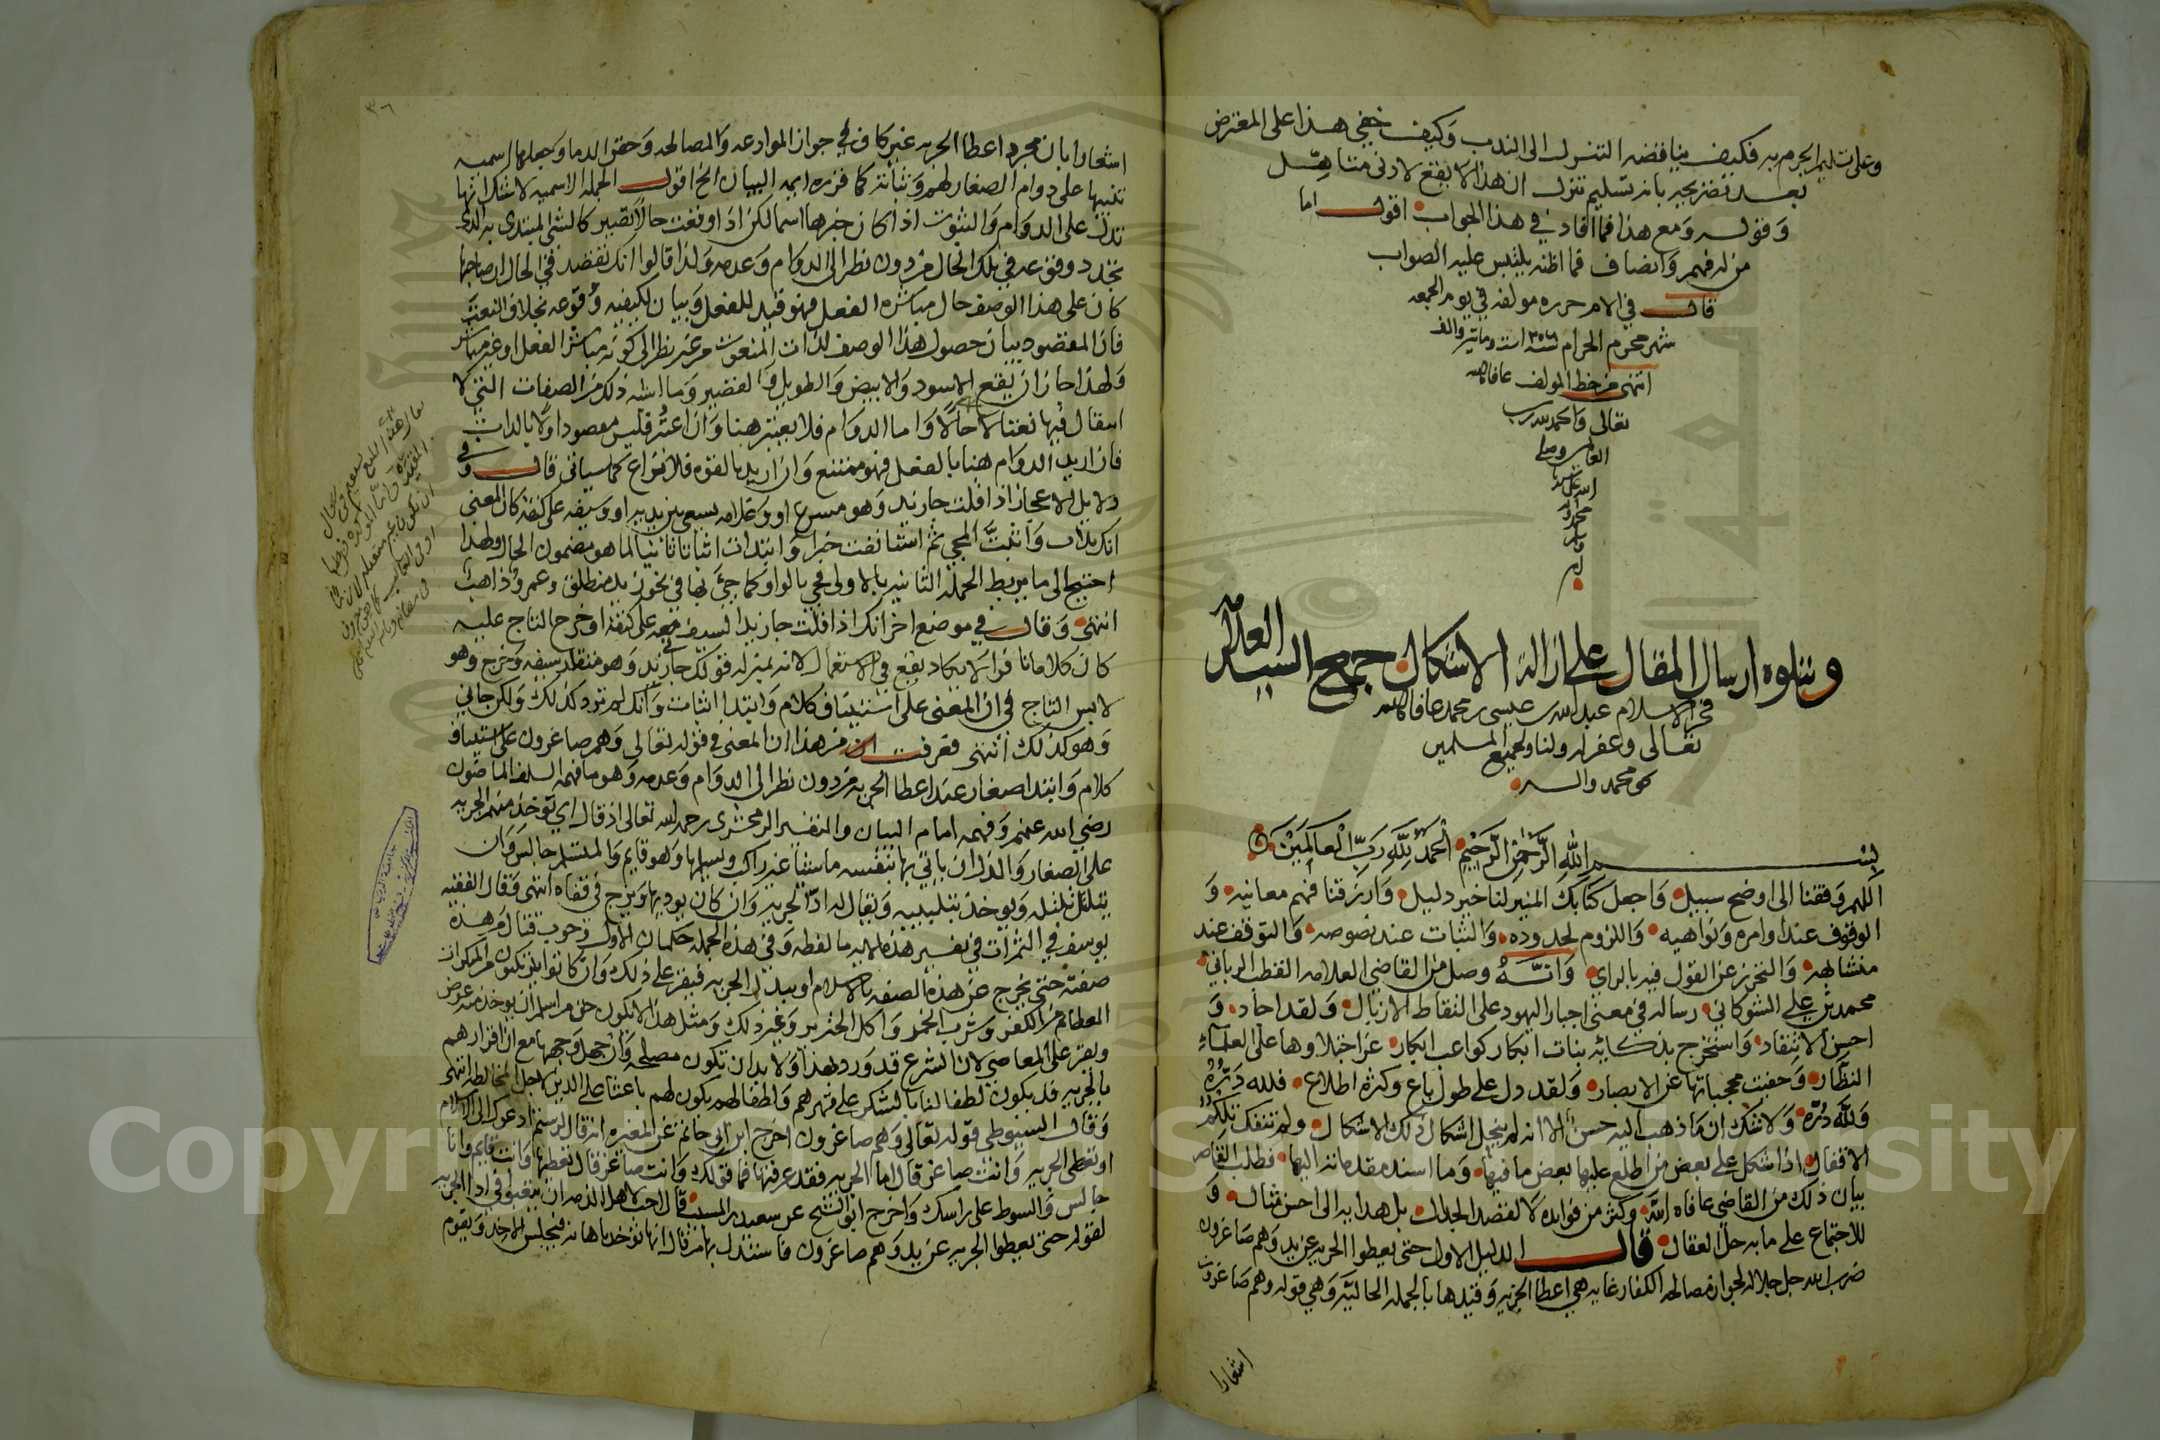 وعلى تسليم الجزم به فكيف يناقضه التنزل الى الندب وكيف خفي هذا على المعترض
بعد تصريحه بانه تسليم تنزل ان هذا لا يقع لادنى متاهل
وقوله ومع هذا فما افاد في هذا الجواب اقول اما
من له فهم وانصاف فما اظنه يلتبس عليه الصواب
قال في الام حرره مولفه في يوم الجمعه
شهر محرم الحرام سنه وماتين والف
انتهى من خط المولف عافاه الله
تعالى والحمد لله رب
العالمين وصلى
الله على سيدنا
محمد واله
وسلم
وتتلوه ارسال المقال على ازالة الاشكال جمع السيد العلامه
فخر الاسلام عبد الله بن عيسى بن محمد عافاه الله
تعالى وغفر له ولنا ولجميع المسلمين
بحق محمد واله
بسم الله الرحمن الرحيم الحمد لله رب العالمين
اللهم وفقنا الى اوضح سبيل واجعل كتابك المنير لنا خير دليل وارزقنا فهم معانيه و
الوقوف عند اوامره ونواهيه واللزوم لحدوده والثبات عند نصوصه والتوقف عند
متشابهه والتحرز عن القول فيه بالراي وانه وصل من القاضي العلامه القطب الرباني
محمد بن علي الشوكاني رساله في معنى اجبار اليهود على التقاط الازبال ولقد اجاد و
احسن الانتقاد واستخرج بذكائه بنات ابكار كواعب ابكار عز اجتلاوها على العلماء
النظار وخفيت محجباتها عن الابصار ولقد دل على طول باع وكثرة اطلاع فلله دره
ولله دره ولا شك ان ما ذهب اليه حسن الا انه لم ينحل اشكال ذلك الاشكال ولم تنفك تلكم
الاقفال اذا اشكل على بعض من اطلع عليها بعض ما فيها وما اسند مقدماته اليها فطلب القاصر
بيان ذلك من القاضي عافاه الله وكثر من فوايده لا لقصد الجدال بل هدايه الى احسن مثال و
للاجتماع على ما به حل العقال قال الدليل الاول حتى يعطوا الجزيه عن يد وهم صاغرون
ضرب الله جل جلاله لجواز مصالحه الكفار غايه هي اعطا الجزيه وقيدها بالجمله الحاليه وهي قوله وهم صاغرون
اشعارا
اشعارا بان مجرد اعطا الجزيه غير كاف في جواز الموادعه والمصالحه وحقن الدما وجعلها اسميه
تنبيها على دوام الصغار لهم وثباته كما قرره ايمه البيان الخ اقول الجمله الاسميه لا شك انها
تدل على الدوام والثبوت اذا كان خبرها اسما لكن اذا وقعت حالا تصير كالشي المبتدى به الذي
تجدد وقوعه في تلك الحال من دون نظر الى الدوام وعدمه ولذا قالوا انك تقصد في الحال ان صاحبها
كان على هذا الوصف حال مباشره الفعل فهو قيد للفعل وبيان لكيفيه وقوعه بخلاف النعت
فان المقصود بيان حصول هذا الوصف لذات المنعوت من غير نظر الى كونه مباشر الفعل او غير مباشر
ولهذا جاز ان يقع الاسود والابيض والطويل والقصير وما اشبه ذلك من الصفات التي لا
انتقال فيها نعتا لا حالا واما الدوام فلا يعتبر هنا وان اعتبر فليس مقصودا اولا بالذات
فان اريد الدوام هنا بالفعل فهو ممتنع وان اريد بالقوه فلا نزاع كما سياتي قال في
دلايل الاعجاز اذا قلت جا زيد وهو مسرع او وغلامه يسعى بين يديه او وسيفه على كتفه كان المعنى
انك بدات واثبت المجي ثم استانفت خبرا وابتدات اثباتا ثانيا لما هو مضمون الحال ولهذا
احتيج الى ما يربط الجمله الثانيه بالاولى فجي بالواو كما جي بها في نحو زيد منطلق وعمرو ذاهب
انتهى وقال في موضع اخر انك اذا قلت جا زيد السيف على كتفه او خرج التاج عليه
كان كلاما نافرا لا يكاد يقع في الاستعمال لانه بمنزله قولك جا زيد وهو متقلد سيفه وخرج وهو
لابس التاج في ان المعنى على استيناف كلام وابتدا اثبات وانك لم ترد كذلك ولكن جاني
وهو كذلك انتهى فعرفت من هذا ان المعنى في قوله تعالى وهم صاغرون على استيناف
كلام وابتدا صغار عند اعطا الجزيه من دون نظر الى الدوام وعدمه وهو ما فهمه السلف الماضون
رضي الله عنهم وفهمه امام البيان والتفسير الزمخشري رحمه الله تعالى اذ قال اي توخذ منهم الجزيه
على الصغار والذل ان ياتي بها بنفسه ماشيا غير راكب ويسلمها وهو قايم والمتسلم جالس وان
يتلتل تلتله ويوخذ بتلبيبه ويقال له اد الجزيه وان كان يوديها ويزج في قفاه انتهى وقال الفقيه
يوسف في الثمرات في تفسير هذه الايه ما لفظه وفي هذه الجمله حكمان الاول وجوب قتال من هذه
صفته حتى يخرج عن هذه الصفه بالاسلام او يبذل الجزيه فيقر على ذلك وان كانوا يرتكبون من المنكرات
العظام من الكفر وشرب الخمر واكل الخنزير وغير ذلك ومثل هذا لا يكون حق مراسم ان يوخذ منه عوض
ويقر على المعاصي لان الشرع قد ورد بهذا ولا بد ان تكون مصلحه وان جهل وجهها مع ان اقرارهم
بالجزيه قد يكون لطفا لنا بالشكر على قهرهم ولطفا لهم يكون لهم باعثا على الدين لاجل المخالطه انتهى
وقال السيوطي قوله تعالى وهم صاغرون اخرج ابن ابي حاتم عن المغيره انه قال لرستم ادعوك الى الاسلام
او تعطي الجزيه وانت صاغر قال اما الجزيه فقد عرفتها فما قولك وانت صاغر قال تعطيها وانت قايم وانا
جالس والسوط على راسك واخرج ابو الشيخ عن سعيد بن المسيب قال احب لاهل الذمه ان يتعبوا في ادا الجزيه
لقوله حتى يعطوا الجزيه عن يد وهم صاغرون فاستدل بها من قال انها توخذ باهانه فيجلس الاخذ ويقوم